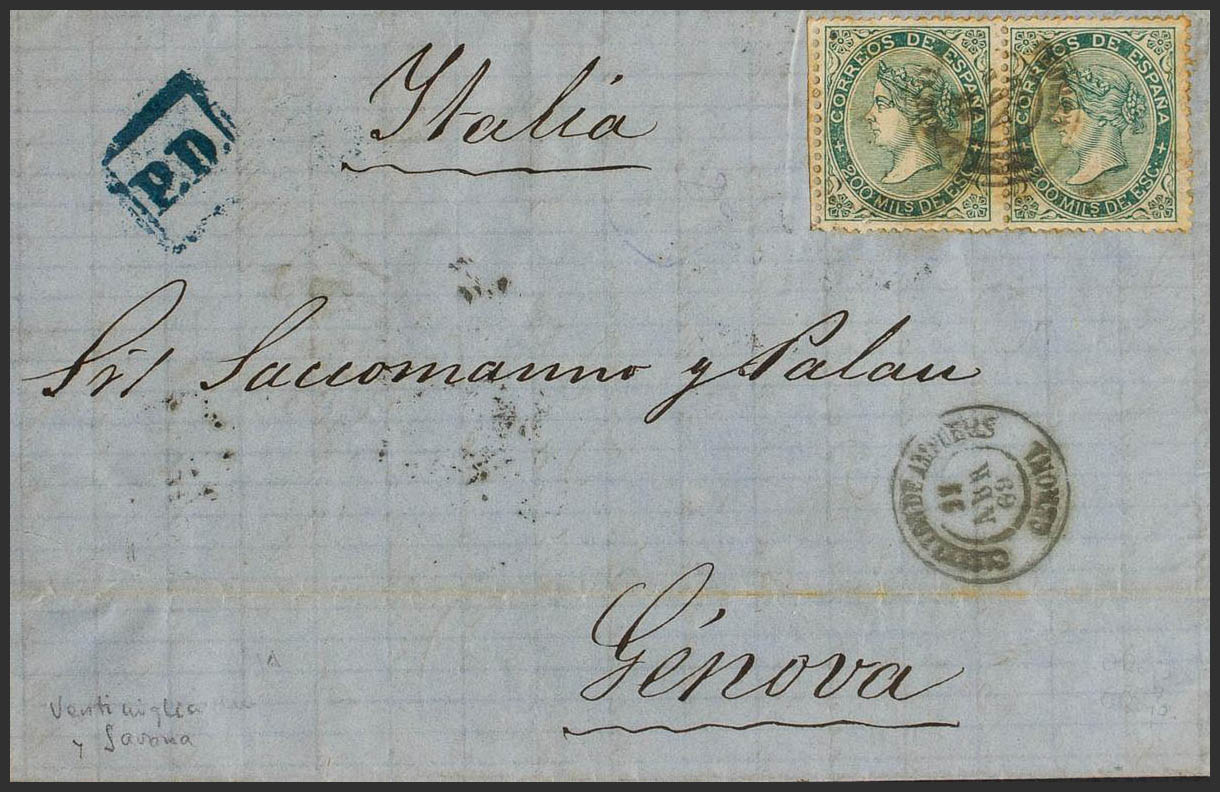 Italia
P.D.
CORREOS DE ESPAÑA
200 MILS DE ESC.
CORREOS DE ESPAÑA
200 MILS DE ESC.
Saccomanno y Palau
GERONA
ABR
69
Génova
Ventimiglia
y Savona